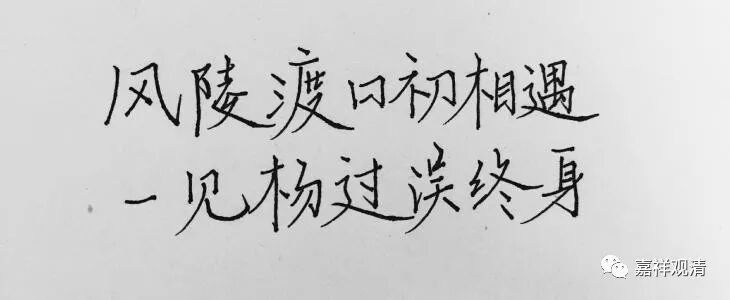 风陵渡口初相遇
一见杨过误终身
嘉祥观清